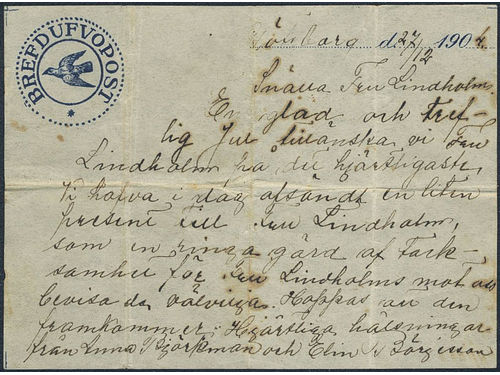 BREFDUFVOPOST
Göteborg d. 27/12 1904
Snälla Fru Lindholm.
En glad och tref-
lig Jul tillönska vi Fru
Lindholm på det hjärtligaste,
Vi hafva i dag afsändt en liten
present till Fru Lindholm,
som en ringa gärd af tack-
samhet för Fru Lindholms mot oss
bevisade välvilja. Hoppas att den
framkommer. Hjärtliga hälsningar
från Anna Björkman och Elin Börjesson